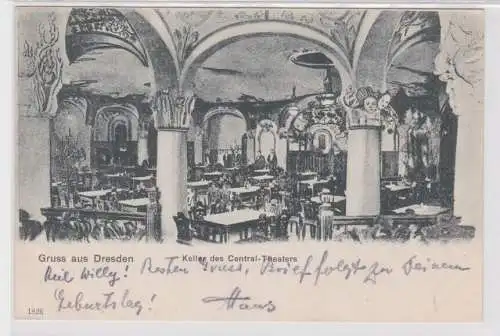 Gruss aus Dresden Keller des Central-Theaters
Willy! Besten Gruss, Brief folgt zu Deinem
Geburtstag! Hans
1826